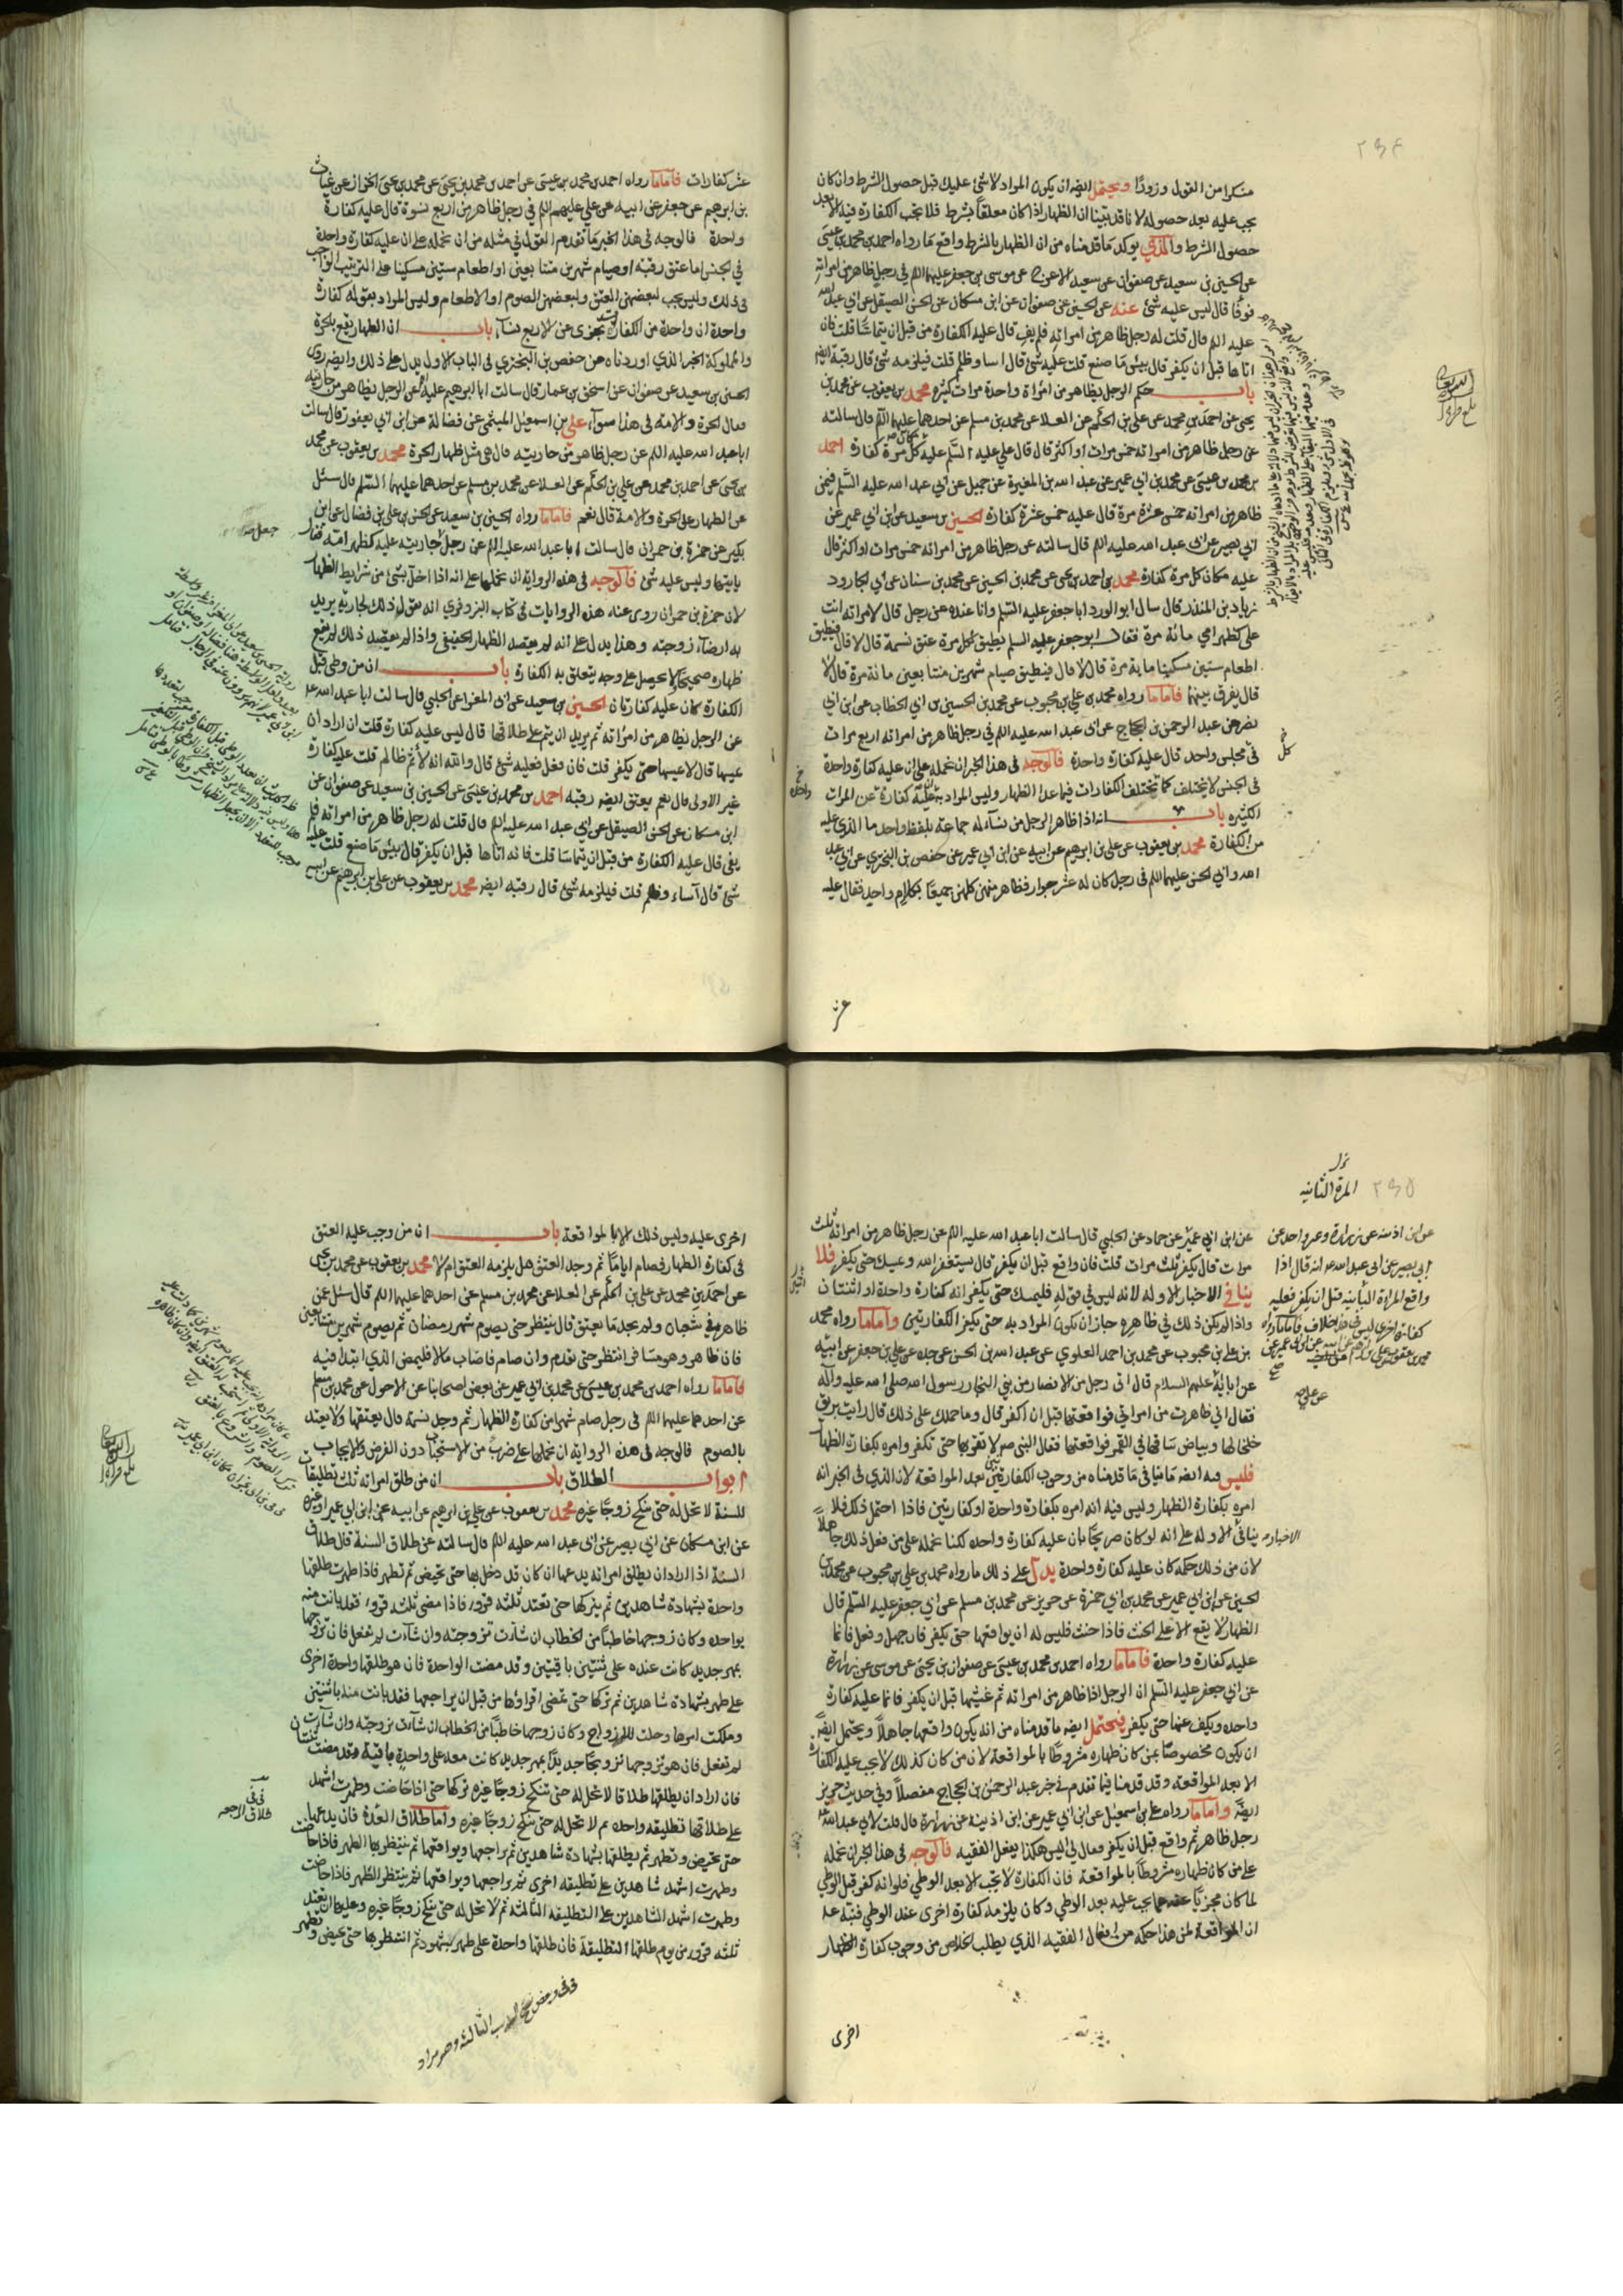 منكرا من القول وزورا ويحتمل ايضا ان يكون المراد لا شئ عليك قبل حصول الشرط وان كان
يجب عليه بعد حصوله لانا قد بينا ان الظهار اذا كان معلقا بشرط فلا تجب الكفارة فيه الا بعد
حصول الشرط والذي يؤكد ما قدمناه من ان الظهار بالشرط واقع ما رواه احمد بن محمد بن عيسى
عن الحسين بن سعيد عن صفوان عن سعيد الاعرج عن موسى بن جعفر عليهما السلم في رجل ظاهر من امراته
فوفا قال ليس عليه شئ عنه عن الحسين عن صفوان عن ابن مسكان عن الحسن الصيقل عن ابي عبد الله
عليه السلم قال قلت له رجل ظاهر من امراته فلم يف قال عليه الكفارة من قبل ان يتماسا قلت فان
اتاها قبل ان يكفر قال بئس ما صنع قلت عليه شئ قال اسا وظلم قلت فيلزمه شئ قال رقبة ايضا
باب حكم الرجل يظاهر من امراة واحدة مرات كثيرة محمد بن يعقوب عن محمد بن
يحيى عن احمد بن محمد عن علي بن الحكم عن العلا عن محمد بن مسلم عن احدهما عليهما السلم قال سالته
عن رجل ظاهر من امراته خمس مرات او اكثر قال قال علي عليه السلم عليه مكان كل مرة كفارة احمد
بن محمد بن عيسى عن محمد بن ابي عمير عن عبد الله بن المغيرة عن جميل عن ابي عبد الله عليه السلم فيمن
ظاهر من امراته خمس عشرة مرة قال عليه خمس عشرة كفارة الحسين بن سعيد عن ابن ابي عمير عن
ابي بصير عن ابي عبد الله عليه السلم قال سالته عن رجل ظاهر من امراته خمس مرات او اكثر قال
عليه مكان كل مرة كفارة محمد بن احمد بن يحيى عن محمد بن الحسين عن محمد بن سنان عن ابي الجارود
زياد بن المنذر قال سال ابو الورد ابا جعفر عليه السلم وانا عنده عن رجل قال لامراته انت
علي كظهر امي مائة مرة فقال ابو جعفر عليه السلم يطيق لكل مرة عتق نسمة قال لا قال فيطيق
اطعام ستين مسكينا مائة مرة قال لا قال فيطيق صيام شهرين متتابعين مائة مرة قال لا
قال يفرق بينهما فاما ما رواه محمد بن علي بن محبوب عن محمد بن الحسين بن ابي الخطاب عن ابن ابي
نصر عن عبد الرحمن بن الحجاج عن ابي عبد الله عليه السلم في رجل ظاهر من امراته اربع مرات
في مجلس واحد قال عليه كفارة واحدة فالوجه في هذا الخبر ان نحمله على ان عليه كفارة واحدة
في الجنس لا يختلف كما تختلف الكفارات فيما عدا الظهار وليس المراد به عليه كفارة عن المرات
الكثيرة باب انه اذا ظاهر الرجل من نسآء له جماعة بلفظ واحد ما الذي عليه
من الكفارة محمد بن يعقوب عن علي بن ابرهيم عن ابيه عن ابن ابي عمير عن حفص بن البختري عن ابي عبد
الله وابي الحسن عليهما السلم في رجل كان له عشر جوار فظاهر منهن كلهن جميعا بكلام واحد فقال عليه
عشر
عشر كفارات فاما ما رواه احمد بن محمد بن عيسى عن احمد بن محمد بن يحيى عن محمد بن يحيى الخزاز عن غياث
بن ابرهيم عن جعفر عن ابيه عن علي عليهم السلم في رجل ظاهر من اربع نسوة قال عليه كفارة
واحدة فالوجه في هذا الخبر ما تقدم القول في مثله من ان نحمله على ان عليه كفارة واحدة
في الجنس اما عتق رقبة او صيام شهرين متتابعين او اطعام ستين مسكينا على الترتيب الواجب
في ذلك وليس يجب لبعضهن العتق ولبعضهن الصوم او الاطعام وليس المراد بقوله كفارة
واحدة ان واحدة من الكفارات تجزي عن الاربع نسآء باب ان الظهار يقع بالحرة
والمملوكة الخبر الذي اوردناه عن حفص بن البختري في الباب الاول يدل على ذلك وايضا روى
الحسين بن سعيد عن صفوان عن اسحق بن عمار قال سالت ابا ابرهيم عليه السلم عن الرجل يظاهر من جاريته
فقال الحرة والامة في هذا سوآء علي بن اسمعيل الميثمي عن فضالة عن ابن ابي يعفور قال سالت
ابا عبد الله عليه السلم عن رجل ظاهر من جاريته قال هي مثل ظهار الحرة محمد بن يعقوب عن محمد
بن يحيى عن احمد بن محمد عن علي بن الحكم عن العلا عن محمد بن مسلم عن احدهما عليهما السلم قال سئل
عن الظهار على الحرة والامة قال نعم فاما ما رواه الحسين بن سعيد عن الحسن بن علي بن فضال عن ابن
بكير عن حمزة بن حمران قال سالت ابا عبد الله عليه السلم عن رجل جعل جاريته عليه كظهر امه فقال
ياتيها وليس عليه شئ فالوجه في هذه الرواية ان نحملها على انه اذا اخل بشئ من شرايط الظهار
لان حمزة بن حمران روى عنه هذه الروايات في كتاب البزوفري انه يقول ذلك لجاريته يريد
به ارضاء زوجته وهذا يدل على انه لم يقصد الظهار الحقيقي واذا لم يقصد ذلك لم يقع
ظهاره صحيحا لا يحصل على وجه يتعلق به الكفارة باب ان من وطئ قبل
الكفارة كان عليه كفارتان الحسين بن سعيد عن ابي المغرا عن الحلبي قال سالت ابا عبد الله عليه
عن الرجل يظاهر من امراته ثم يريد ان يتم على طلاقها قال ليس عليه كفارة قلت ان اراد ان
يمسها قال لا يمسها حتى يكفر قلت فان فعل فعليه شئ قال والله انه لآثم ظالم قلت عليه كفارة
غير الاولى قال نعم يعتق ايضا رقبة احمد بن محمد بن عيسى عن الحسين بن سعيد عن صفوان عن
ابن مسكان عن الحسن الصيقل عن ابي عبد الله عليه السلم قال قلت له رجل ظاهر من امراته فلم
يفي قال عليه الكفارة من قبل ان يتماسا قلت فانه اتاها قبل ان يكفر قال بئس ما صنع قلت عليه
شئ قال اسآء وظلم قلت فيلزمه شئ قال رقبة ايضا محمد بن يعقوب عن علي بن ابرهيم عن ابيه
المرة الثانية
عن ابن ابي عمير عن حماد عن الحلبي قال سالت ابا عبد الله عليه السلم عن رجل ظاهر من امراته ثلث
مرات قال يكفر ثلث مرات قلت فان واقع قبل ان يكفر قال يستغفر الله ويمسك حتى يكفر فلا
ينافي الاخبار الاولة لانه ليس في قوله فليمسك حتى يكفر انه كفارة واحدة او اثنتان
واذا لم يكن ذلك في ظاهره جاز ان يكون المراد به حتى يكفر الكفارتين واما ما رواه محمد
بن علي بن محبوب عن محمد بن احمد العلوي عن عبد الله بن الحسن عن جده عن علي بن جعفر عن ابيه
عن ابائه عليهم السلام قال اتى رجل من الانصار من بني النجار رسول الله صلى الله عليه وآله
فقال اني ظاهرت من امراتي فواقعتها قبل ان اكفر قال وما حملك على ذلك قال رايت بريق
خلخالها وبياض ساقها في القمر فواقعتها فقال النبي ص لا تقربها حتى تكفر وامره بكفارة الظهار
فليس فيه ايضا ما ينافي ما قدمناه من وجوب الكفارتين بعد المواقعة لان الذي في الخبر انه
امره بكفارة الظهار وليس فيه انه امره بكفارة واحدة او كفارتين فاذا احتمل ذلك فلا
ينافي الاولة على انه لو كان صريحا بان عليه كفارة واحدة لكنا نحمله على من فعل ذلك جاهلا
لان من ذلك حكمه كان عليه كفارة واحدة يدل على ذلك ما رواه محمد بن علي بن محبوب عن محمد بن
الحسين عن ابن ابي عمير عن محمد بن ابي حمزة عن حريز عن محمد بن مسلم عن ابي جعفر عليه السلم قال
الظهار لا يقع الا على الحنث فاذا حنث فليس له ان يواقعها حتى يكفر فان جهل وفعل فانما
عليه كفارة واحدة فاما ما رواه احمد بن محمد بن عيسى عن صفوان بن يحيى عن موسى عن زرارة
عن ابي جعفر عليه السلم ان الرجل اذا ظاهر من امراته ثم غشيها قبل ان يكفر فانما عليه كفارة
واحدة ويكف عنها حتى يكفر فيحتمل ايضا ما قدمناه من انه يكون واقعها جاهلا ويحتمل ايضا
ان يكون مخصوصا بمن كان ظهاره مشروطا بالمواقعة لان من كان كذلك لا يجب عليه الكفارة
الا بعد المواقعة وقد قدمنا فيما تقدم في خبر عبد الرحمن بن الحجاج مفصلا وفي حديث حريز
ايضا واما ما رواه علي بن اسمعيل عن ابن ابي عمير عن ابن اذينة عن زرارة قال قلت لابي عبد الله
رجل ظاهر ثم واقع قبل ان يكفر فقال لي اليس هكذا يفعل الفقيه فالوجه في هذا الخبر ان نحمله
على من كان ظهاره مشروطا بالمواقعة فان الكفارة لا تجب الا بعد الوطي فلو انه كفر قبل الوطي
لما كان مجزيا عما يجب عليه بعد الوطي وكان يلزمه كفارة اخرى عند الوطي فنبه على
ان المواقعة لمن هذا حكمه من افعال الفقيه الذي يطلب الخلاص من وجوب كفارة الظهار
اخرى
اخرى عليه وليس ذلك الا بالمواقعة باب ان من وجب عليه العتق
في كفارة الظهار فصام اياما ثم وجد العتق هل يلزمه العتق ام لا محمد بن يعقوب عن محمد بن يحيى
عن احمد بن محمد عن علي بن الحكم عن العلا عن محمد بن مسلم عن احدهما عليهما السلم قال سئل عن
ظاهر في شعبان ولم يجد ما يعتق قال ينتظر حتى يصوم شهر رمضان ثم يصوم شهرين متتابعين
فان ظاهر وهو مسافر انتظر حتى تقدم وان صام فاصاب مالا فليمض الذي ابتدا فيه
فاما ما رواه احمد بن محمد بن عيسى عن محمد بن ابي عمير عن بعض اصحابنا عن الاحول عن محمد بن مسلم
عن احدهما عليهما السلم في رجل صام شهرا من كفارة الظهار ثم وجد نسمة قال يعتقها ولا يعتد
بالصوم فالوجه في هذه الرواية ان نحملها على ضرب من الاستحباب دون الفرض والايجاب
ابواب الطلاق باب ان من طلق امراته ثلث تطليقات
للسنة لا تحل له حتى تنكح زوجا غيره محمد بن يعقوب عن علي بن ابرهيم عن ابيه عن ابن ابي عمير او غيره
عن ابن مسكان عن ابي بصير عن ابي عبد الله عليه السلم قال سالته عن طلاق السنة قال طلاق
السنة اذا اراد ان يطلق امراته يدعها ان كان قد دخل بها حتى تحيض ثم تطهر فاذا طهرت طلقها
واحدة بشهادة شاهدين ثم يتركها حتى تعتد ثلثة قروء فاذا مضى ثلثة قروء فقد بانت منه
بواحدة وكان زوجها خاطبا من الخطاب ان شآءت تزوجته وان شآءت لم تفعل فان تزوجها
بمهر جديد كانت عنده على ثنتين باقيتين وقد مضت الواحدة فان هو طلقها واحدة اخرى
على طهر بشهادة شاهدين ثم تركها حتى تمضي اقراؤها من قبل ان يراجعها فقد بانت منه باثنتين
وملكت امرها وحلت للازواج وكان زوجها خاطبا من الخطاب ان شآءت تزوجته وان شآءت
لم تفعل فان هو تزوجها تزويجا جديدا بمهر جديد كانت معه على واحدة باقية وقد مضت ثنتان
فان اراد ان يطلقها طلاقا لا تحل له حتى تنكح زوجا غيره تركها حتى اذا حاضت وطهرت اشهد
على طلاقها تطليقة واحدة ثم لا تحل له حتى تنكح زوجا غيره واما طلاق العدة فان يدعها
حتى تحيض وتطهر ثم يطلقها بشهادة شاهدين ثم يراجعها ويواقعها ثم ينتظر بها الطهر فاذا حاضت
وطهرت اشهد شاهدين على تطليقة اخرى ثم يراجعها ويواقعها ثم ينتظر الطهر فاذا حاضت
وطهرت اشهد الشاهدين على التطليقة الثالثة ثم لا تحل له حتى تنكح زوجا غيره وعليها ان تعتد
ثلثة قروء من يوم طلقها التطليقة فان طلقها واحدة على طهر بشهود ثم انتظر بها حتى تحيض وتطهر